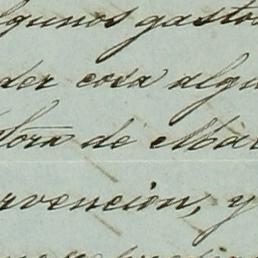 lgunos gasto
der cosa algu
dora de Mar
rvención, y